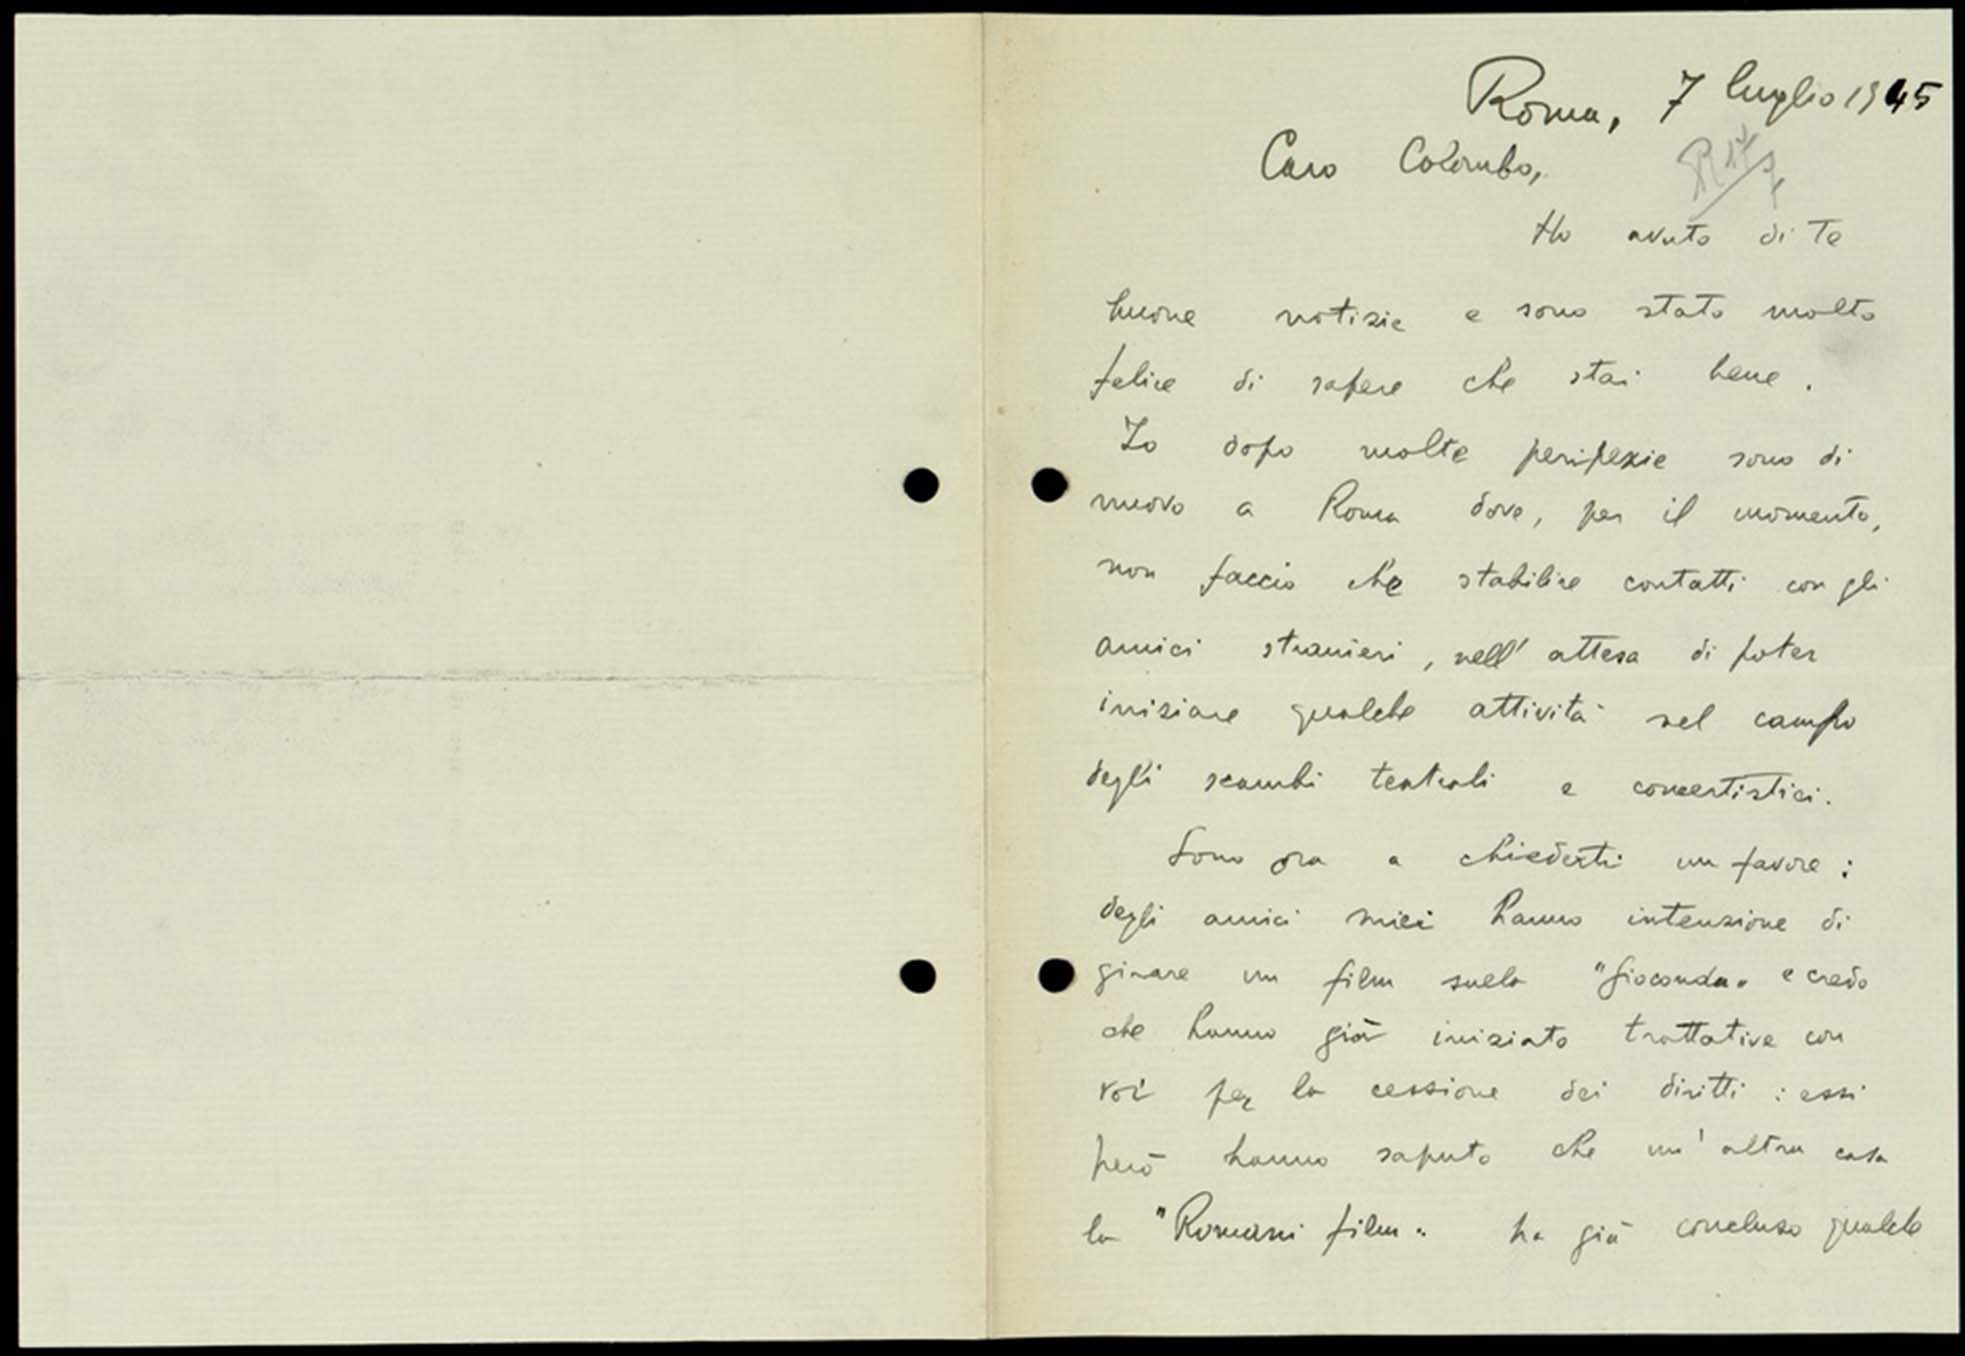 Roma, 7 luglio 1945
R 17/7
Caro Colombo,
Ho avuto di Te
buone notizie e sono stato molto
felice di sapere che stai bene.
Io dopo molte peripezie sono di
nuovo a Roma dove, per il momento,
non faccio che stabilire contatti con gli
amici stranieri, nell'attesa di poter
iniziare qualche attività nel campo
degli scambi teatrali e concertistici.
Sono ora a chiederti un favore:
degli amici miei hanno intenzione di
girare un film sulla "Gioconda" e credo
che hanno già iniziato trattative con
voi per la cessione dei diritti: essi
però hanno saputo che un'altra casa
la "Romani film" ha già concluso qualche